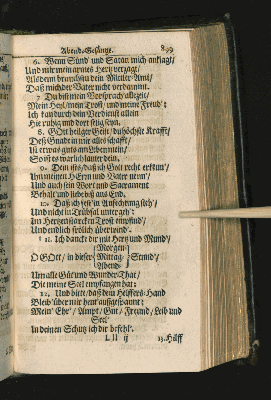 Abend-Gesänge. 899
6. Wenn Sünd' und Satan mich anklagt/
Und mir mein armes Hertz verzagt/
Alsdenn brauch du dein Mittler-Amt/
Daß mich der Vater nicht verdammt.
7. Du bist mein Vorsprach allezeit/
Mein Heyl/ mein Trost/ und meine Freud';
Ich kan durch dein Verdienst allein
Hie ruhig und dort selig seyn.
8. GOtt heilger Geist/ du höchste Krafft/
Deß Gnade in mir alles schafft/
Ist etwas guts am Leben mein/
So ist es warlich lauter dein.
9. Dein ists/ daß ich Gott recht erkenn'/
Ihn meinen HErrn und Vater nenn'/
Und auch sein Wort und Sacrament
Behalt' und lieb' biß ans End.
10. Daß ich fest' in Anfechtung steh'/
Und nicht in Trübsal untergeh';
Im Hertzen starcken Trost empfind'/
Und endlich frölich überwind'.
11. Ich dancke dir mit Hertz und Mund'/
(Morgen-
O GOtt/ in dieser (Mittag- Stund'/
(Abend-
Um alle Güt' und Wunder-That/
Die meine Seel empfangen hat:
12. Und bitte/ daß dein Helffers-Hand
Bleib' über mir heut' ausgespannt;
Mein' Ehr'/ Ampt/ Gut/ Freund/ Leib und
Seel'
In deinen Schutz ich dir befehl'.
L ll ij 13. Hülff